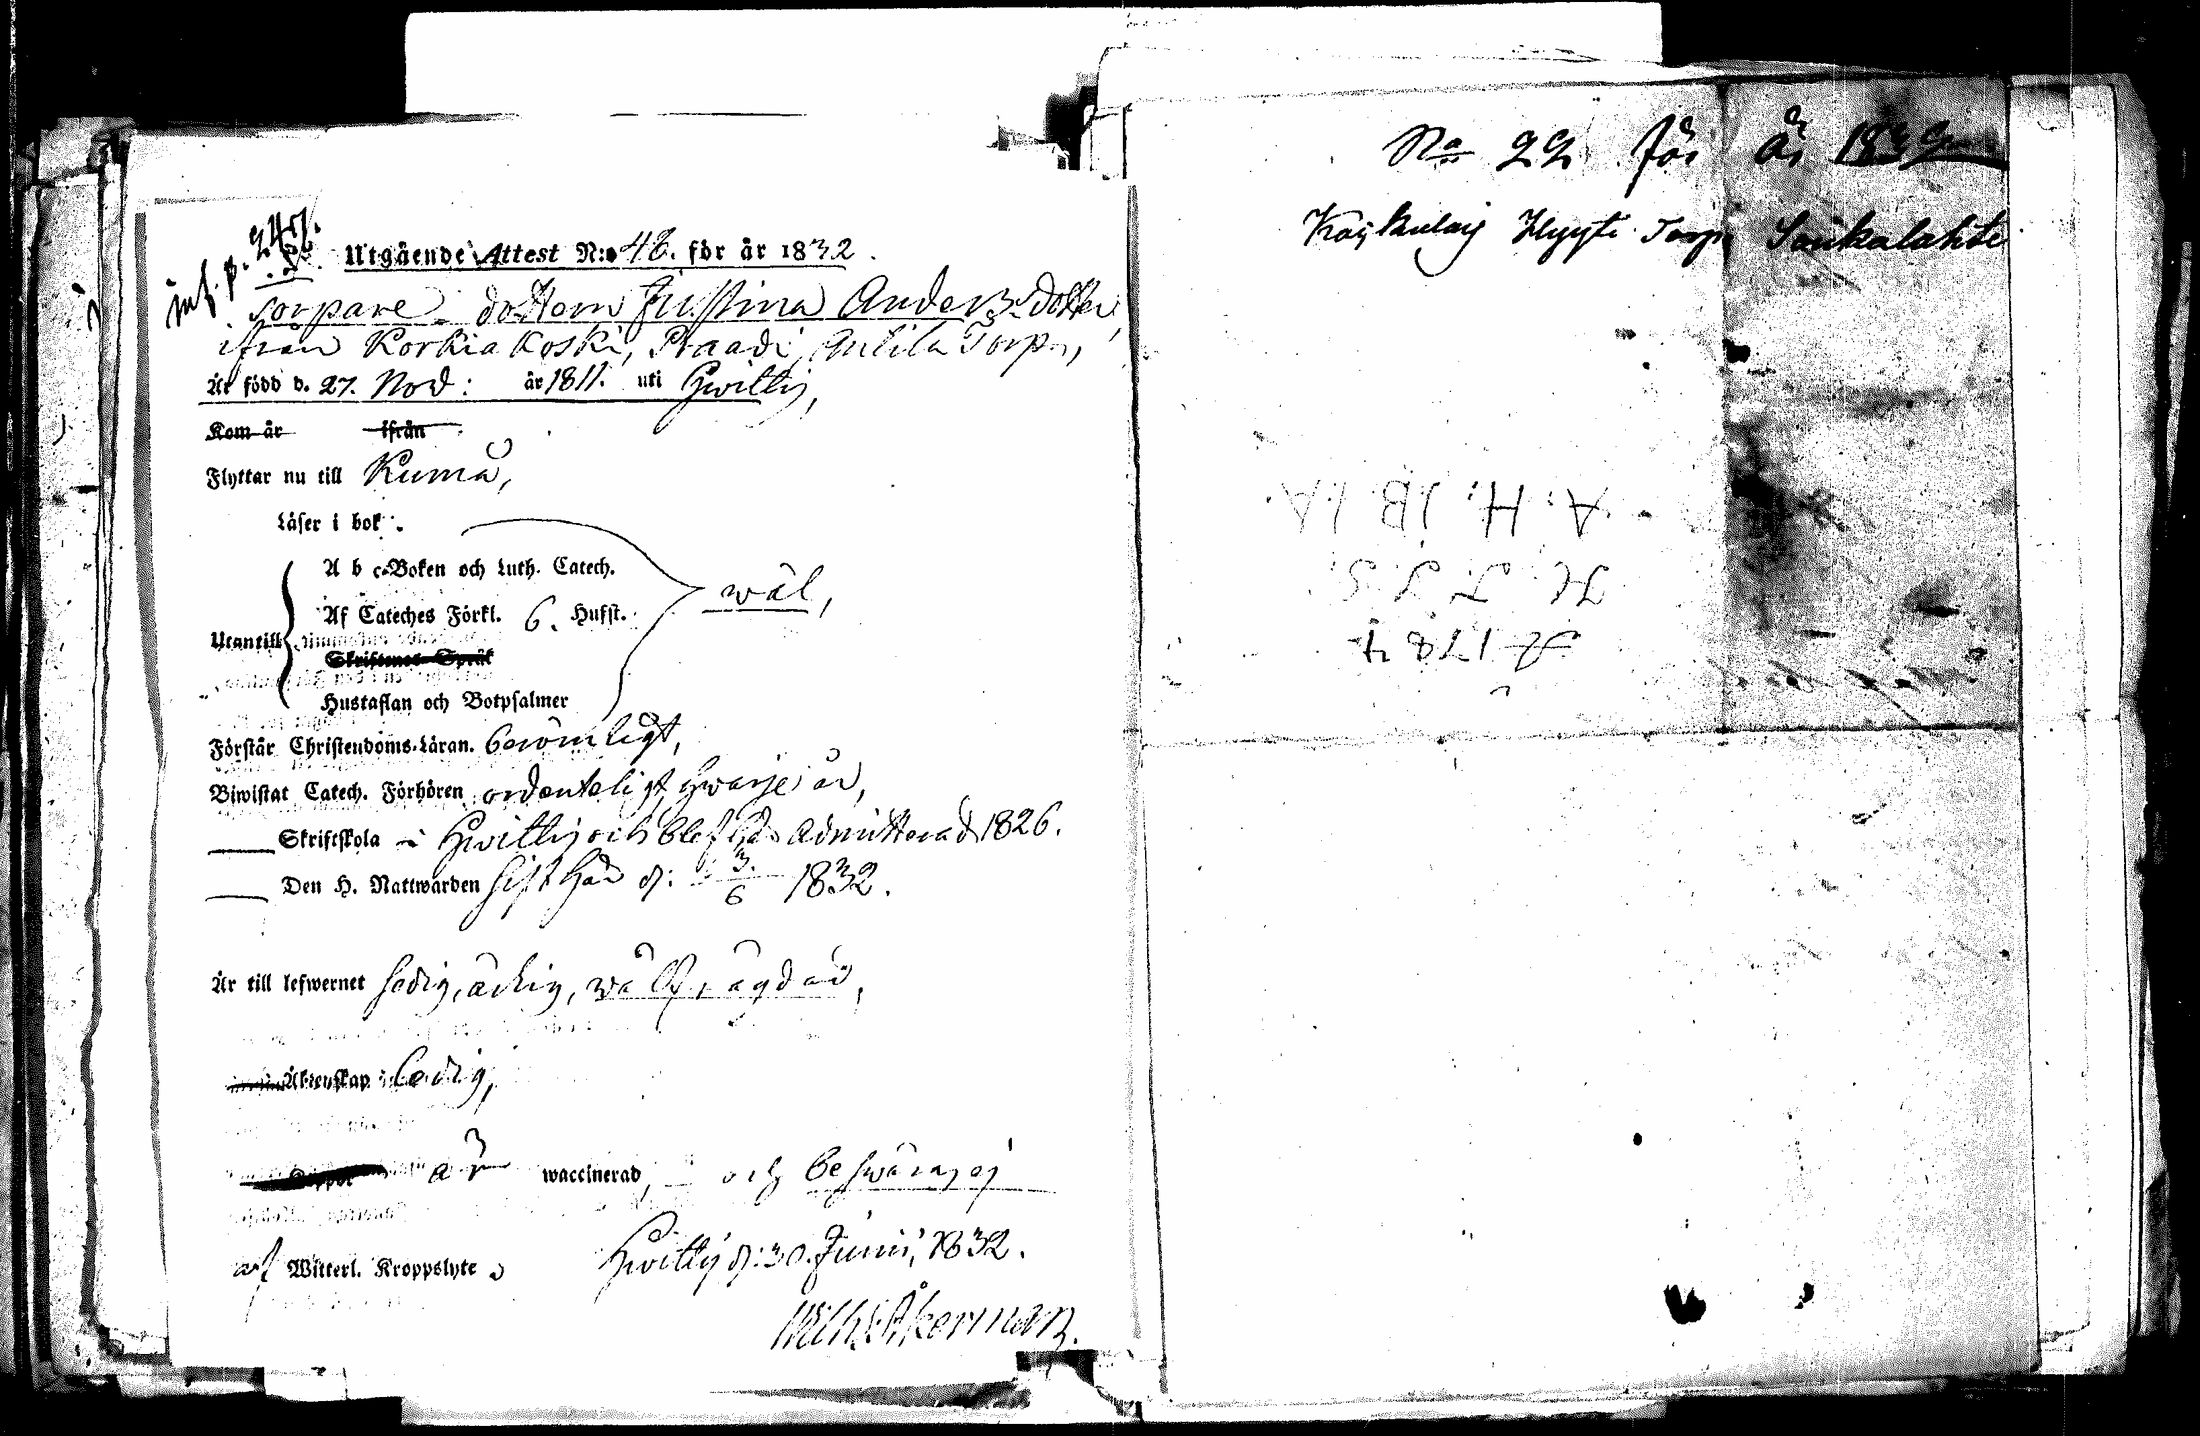 inf. p. 247.
Utgående Attest N:o 48. för år 1832.
Torpare dottern Justina Anders dotter
ifrån Korkiakoski, Praadi, Antila Torp,
Är född d. 27. Nov: år 1811. uti Hwittis,
Kom år ifrån
Flyttar nu till Kumå,
Läser i bok.
A b c-Boken och Luth. Catech.
wäl,
Af Cateches Förkl. 6. Hufst.
Utantill
Skriftenes Språk
Hustaflan och Botpsalmer
Förstår Christendoms-Läran. berömligt,
Biwistat Catech. Förhören ordenteligt hwarje år,
Skriftskola i Hwittis och blef admitterad 1826.
Den H. Nattwarden sist här d: 3/6 1832.
Är till lefwernet sedig, ärlig, wälfrägdad,
Äktenskap ledig,
är waccinerad, och beswäras ej
af Witterl. Kroppslyte
Hwittis d: 30. Junii, 1832.
Wilh. Åkerman.
No 22 för år 1832
Torp Sonkalahti
A: H: IB IA.
A 1784